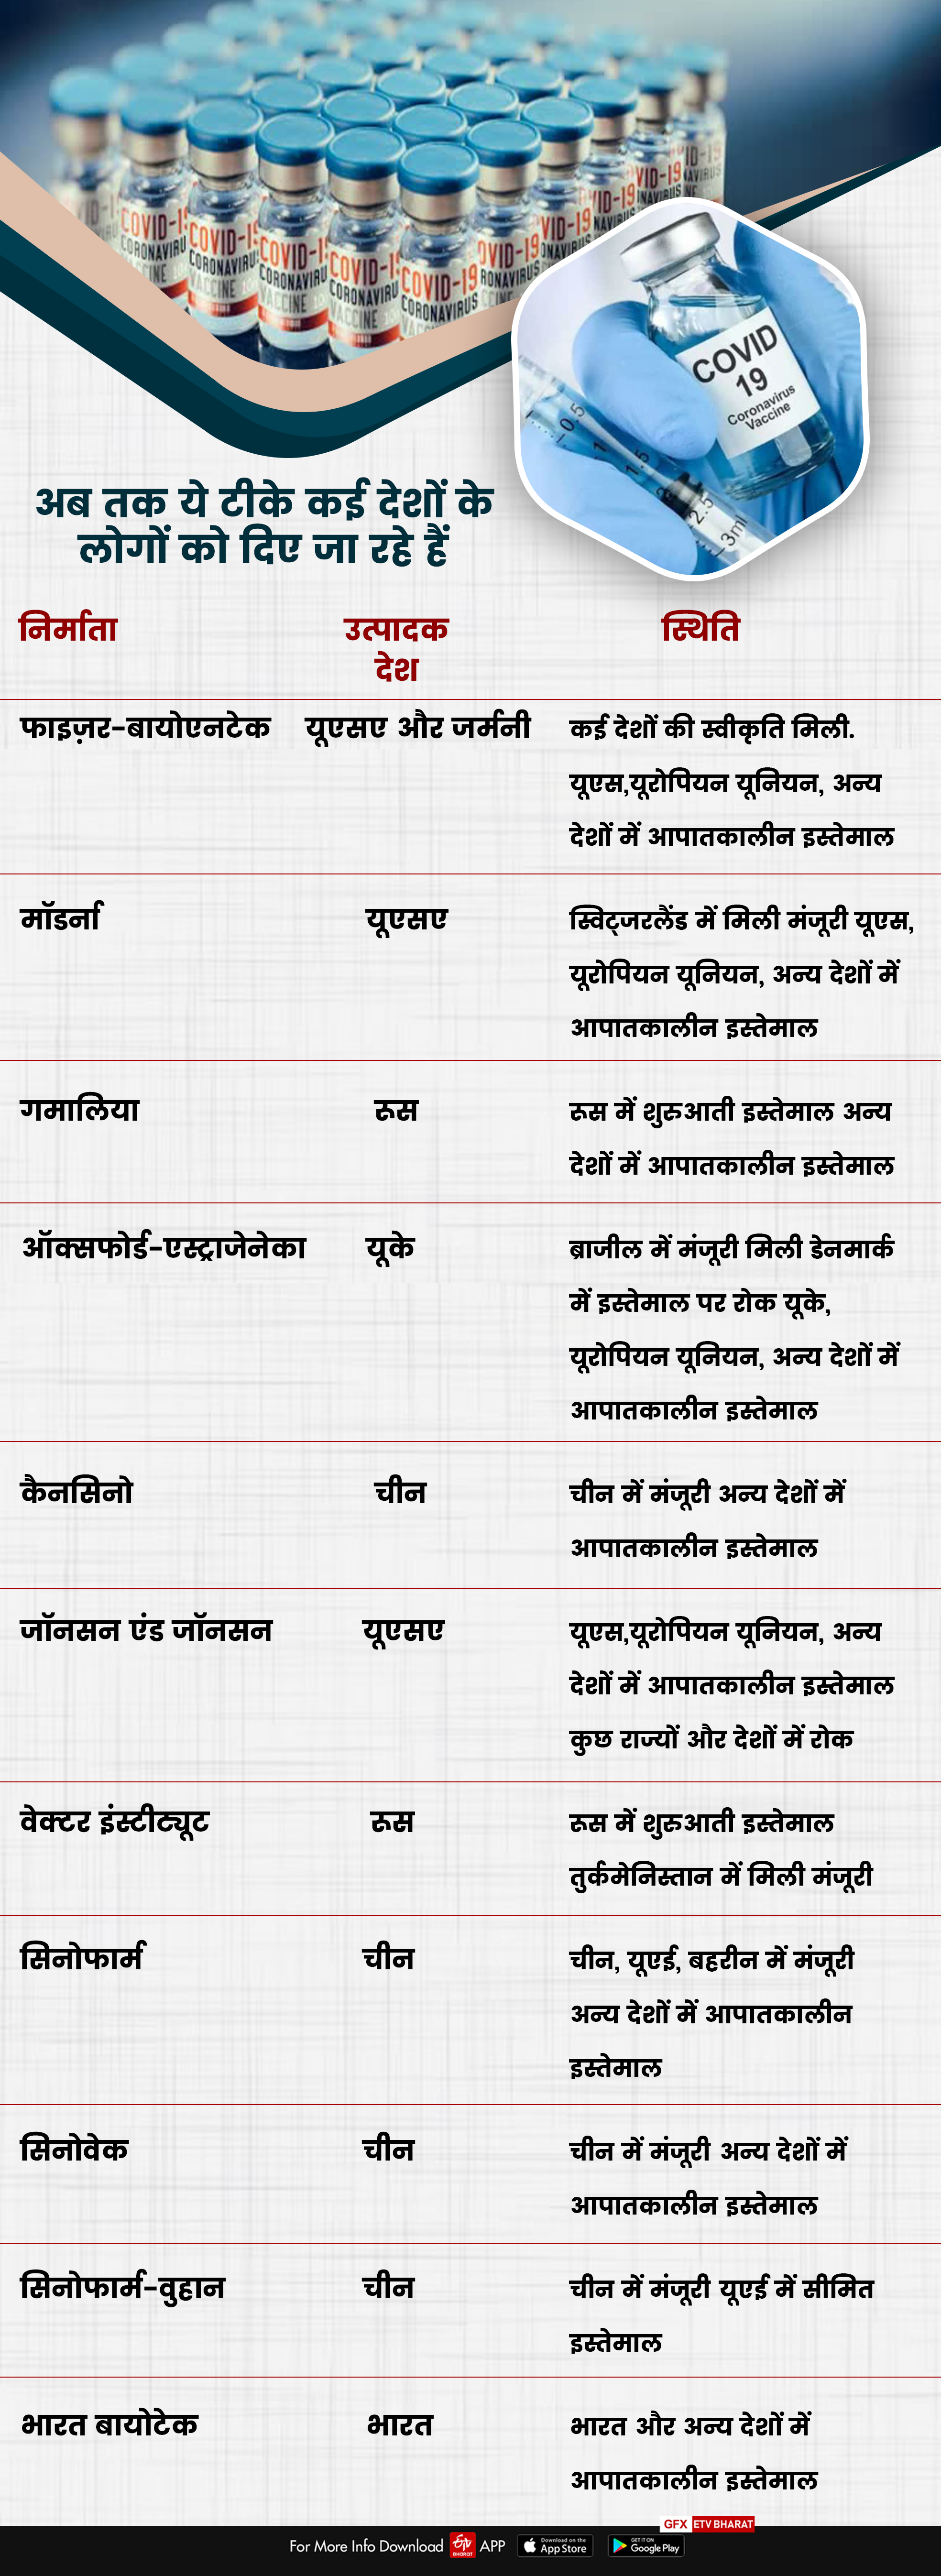 COVID-19
CORONAVIRUS
VACCINE
COVID
19
Coronavirus
Vaccine
0.5
1
1.5
2.5
3ml
अब तक ये टीके कई देशों के
लोगों को दिए जा रहे हैं
निर्माता उत्पादक स्थिति
देश
फाइज़र-बायोएनटेक यूएसए और जर्मनी कई देशों की स्वीकृति मिली.
यूएस,यूरोपियन यूनियन, अन्य
देशों में आपातकालीन इस्तेमाल
मॉडर्ना यूएसए स्विट्जरलैंड में मिली मंजूरी यूएस,
यूरोपियन यूनियन, अन्य देशों में
आपातकालीन इस्तेमाल
गमालिया रूस रूस में शुरुआती इस्तेमाल अन्य
देशों में आपातकालीन इस्तेमाल
ऑक्सफोर्ड-एस्ट्राजेनेका यूके ब्राजील में मंजूरी मिली डेनमार्क
में इस्तेमाल पर रोक यूके,
यूरोपियन यूनियन, अन्य देशों में
आपातकालीन इस्तेमाल
कैनसिनो चीन चीन में मंजूरी अन्य देशों में
आपातकालीन इस्तेमाल
जॉनसन एंड जॉनसन यूएसए यूएस,यूरोपियन यूनियन, अन्य
देशों में आपातकालीन इस्तेमाल
कुछ राज्यों और देशों में रोक
वेक्टर इंस्टीट्यूट रूस रूस में शुरुआती इस्तेमाल
तुर्कमेनिस्तान में मिली मंजूरी
सिनोफार्म चीन चीन, यूएई, बहरीन में मंजूरी
अन्य देशों में आपातकालीन
इस्तेमाल
सिनोवेक चीन चीन में मंजूरी अन्य देशों में
आपातकालीन इस्तेमाल
सिनोफार्म-वुहान चीन चीन में मंजूरी यूएई में सीमित
इस्तेमाल
भारत बायोटेक भारत भारत और अन्य देशों में
आपातकालीन इस्तेमाल
GFX ETV BHARAT
For More Info Download ETV BHARAT APP Download on the App Store GET IT ON Google Play